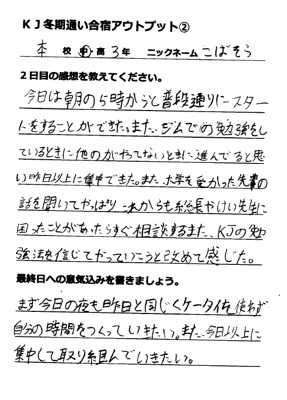 KJ冬期通い合宿アウトプット②
本 校 中・高 3年 ニックネーム こばそう
2日目の感想を教えてください。
今日は朝の5時からと普段通りにスター
トをすることができた。また、ジムでの勉強をし
ているときに他のがやってないときに進んでると思
い昨日以上に集中できた。また、大学を受かった先輩の
話を聞いてやっぱり これからも総長やけい先生に
困ったことがあったらすぐ相談する。また、KJの勉
強法を信じてやっていこうと改めて感じた。
最終日への意気込みを書きましょう。
まず今日の夜も昨日と同じくケータイを使わず
自分の時間をつくっていきたい。また、今日以上に
集中して取り組んでいきたい。